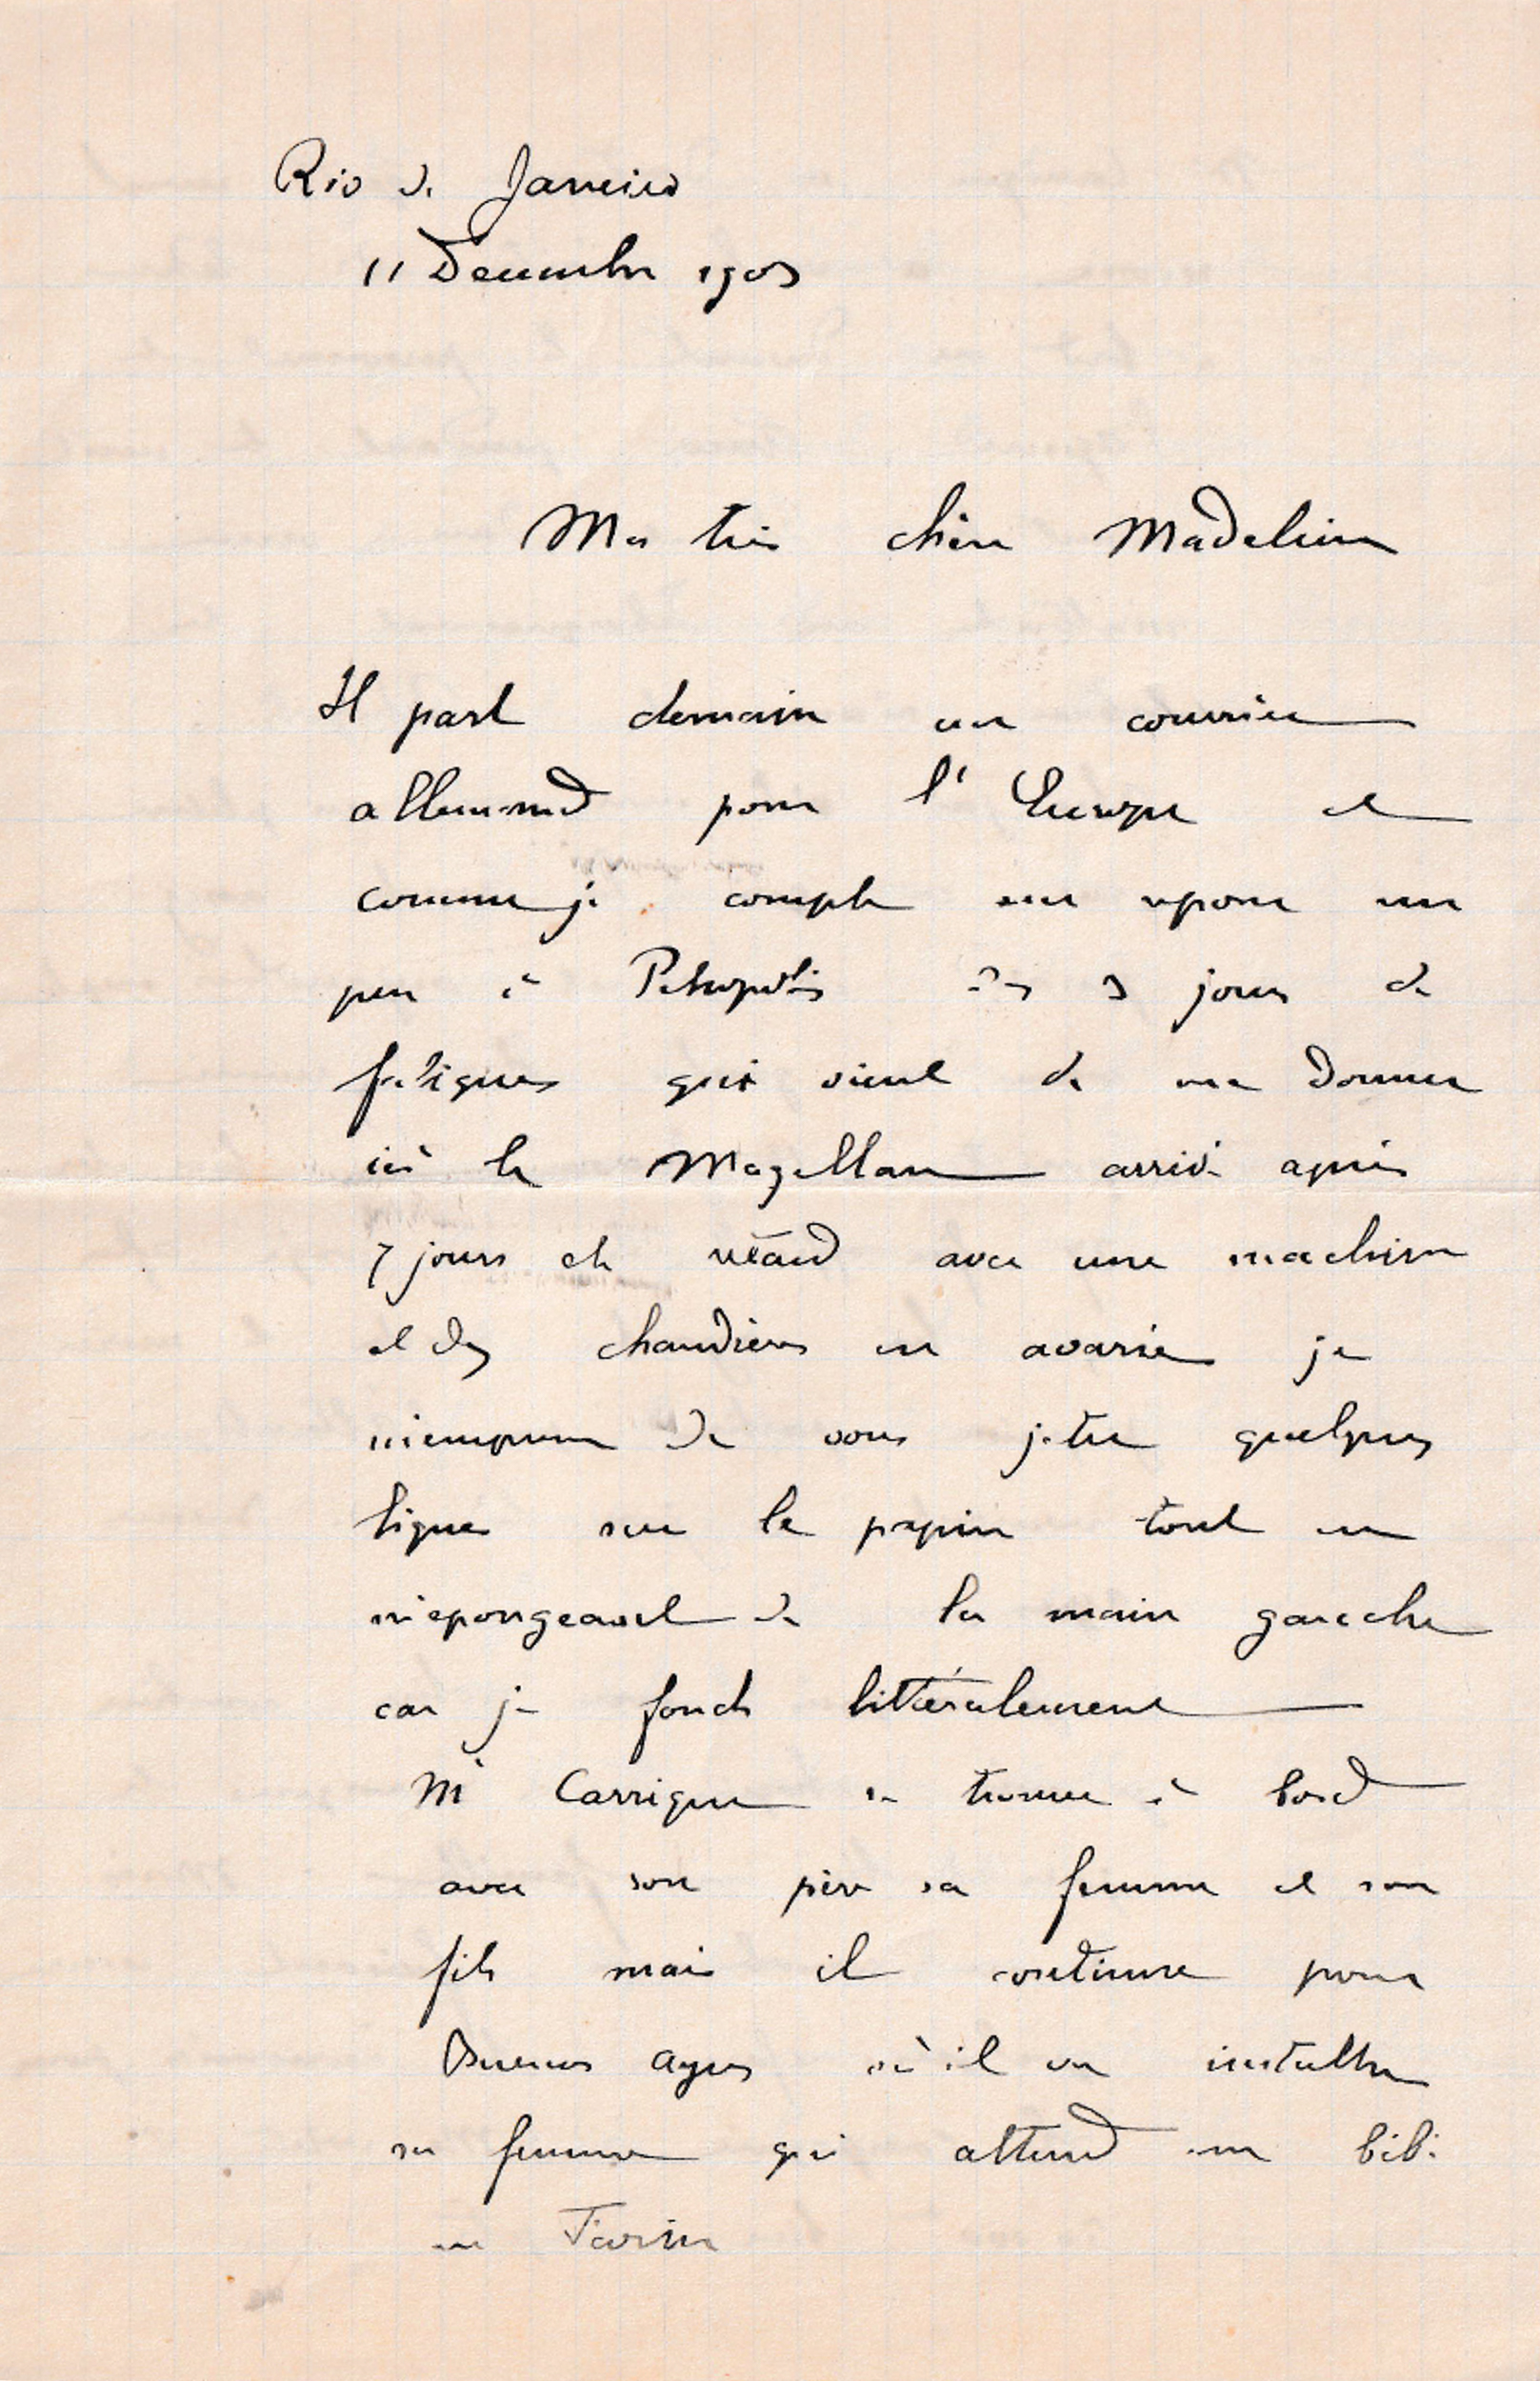 Rio de Janeiro
11 Decembre 1903
Ma très chère Madeleine
Il part demain un courrier
allemand pour l'Europe et
comme je compte me reposer un
peu à Petropolis des 3 jours de
fatigues que vient de me donner
ici le Magellan arrivé après
7 jours de retard avec une machine
et des chaudières en avarie je
m'empresse de vous jeter quelques
lignes sur le papier tout en
m'epongeant de la main gauche
car je fonds littéralement
Mr Carrigue se trouve à bord
avec son père sa femme et son
fils mais il continue pour
Buenos Ayres où il va installer
sa femme qui attend un bébé
en